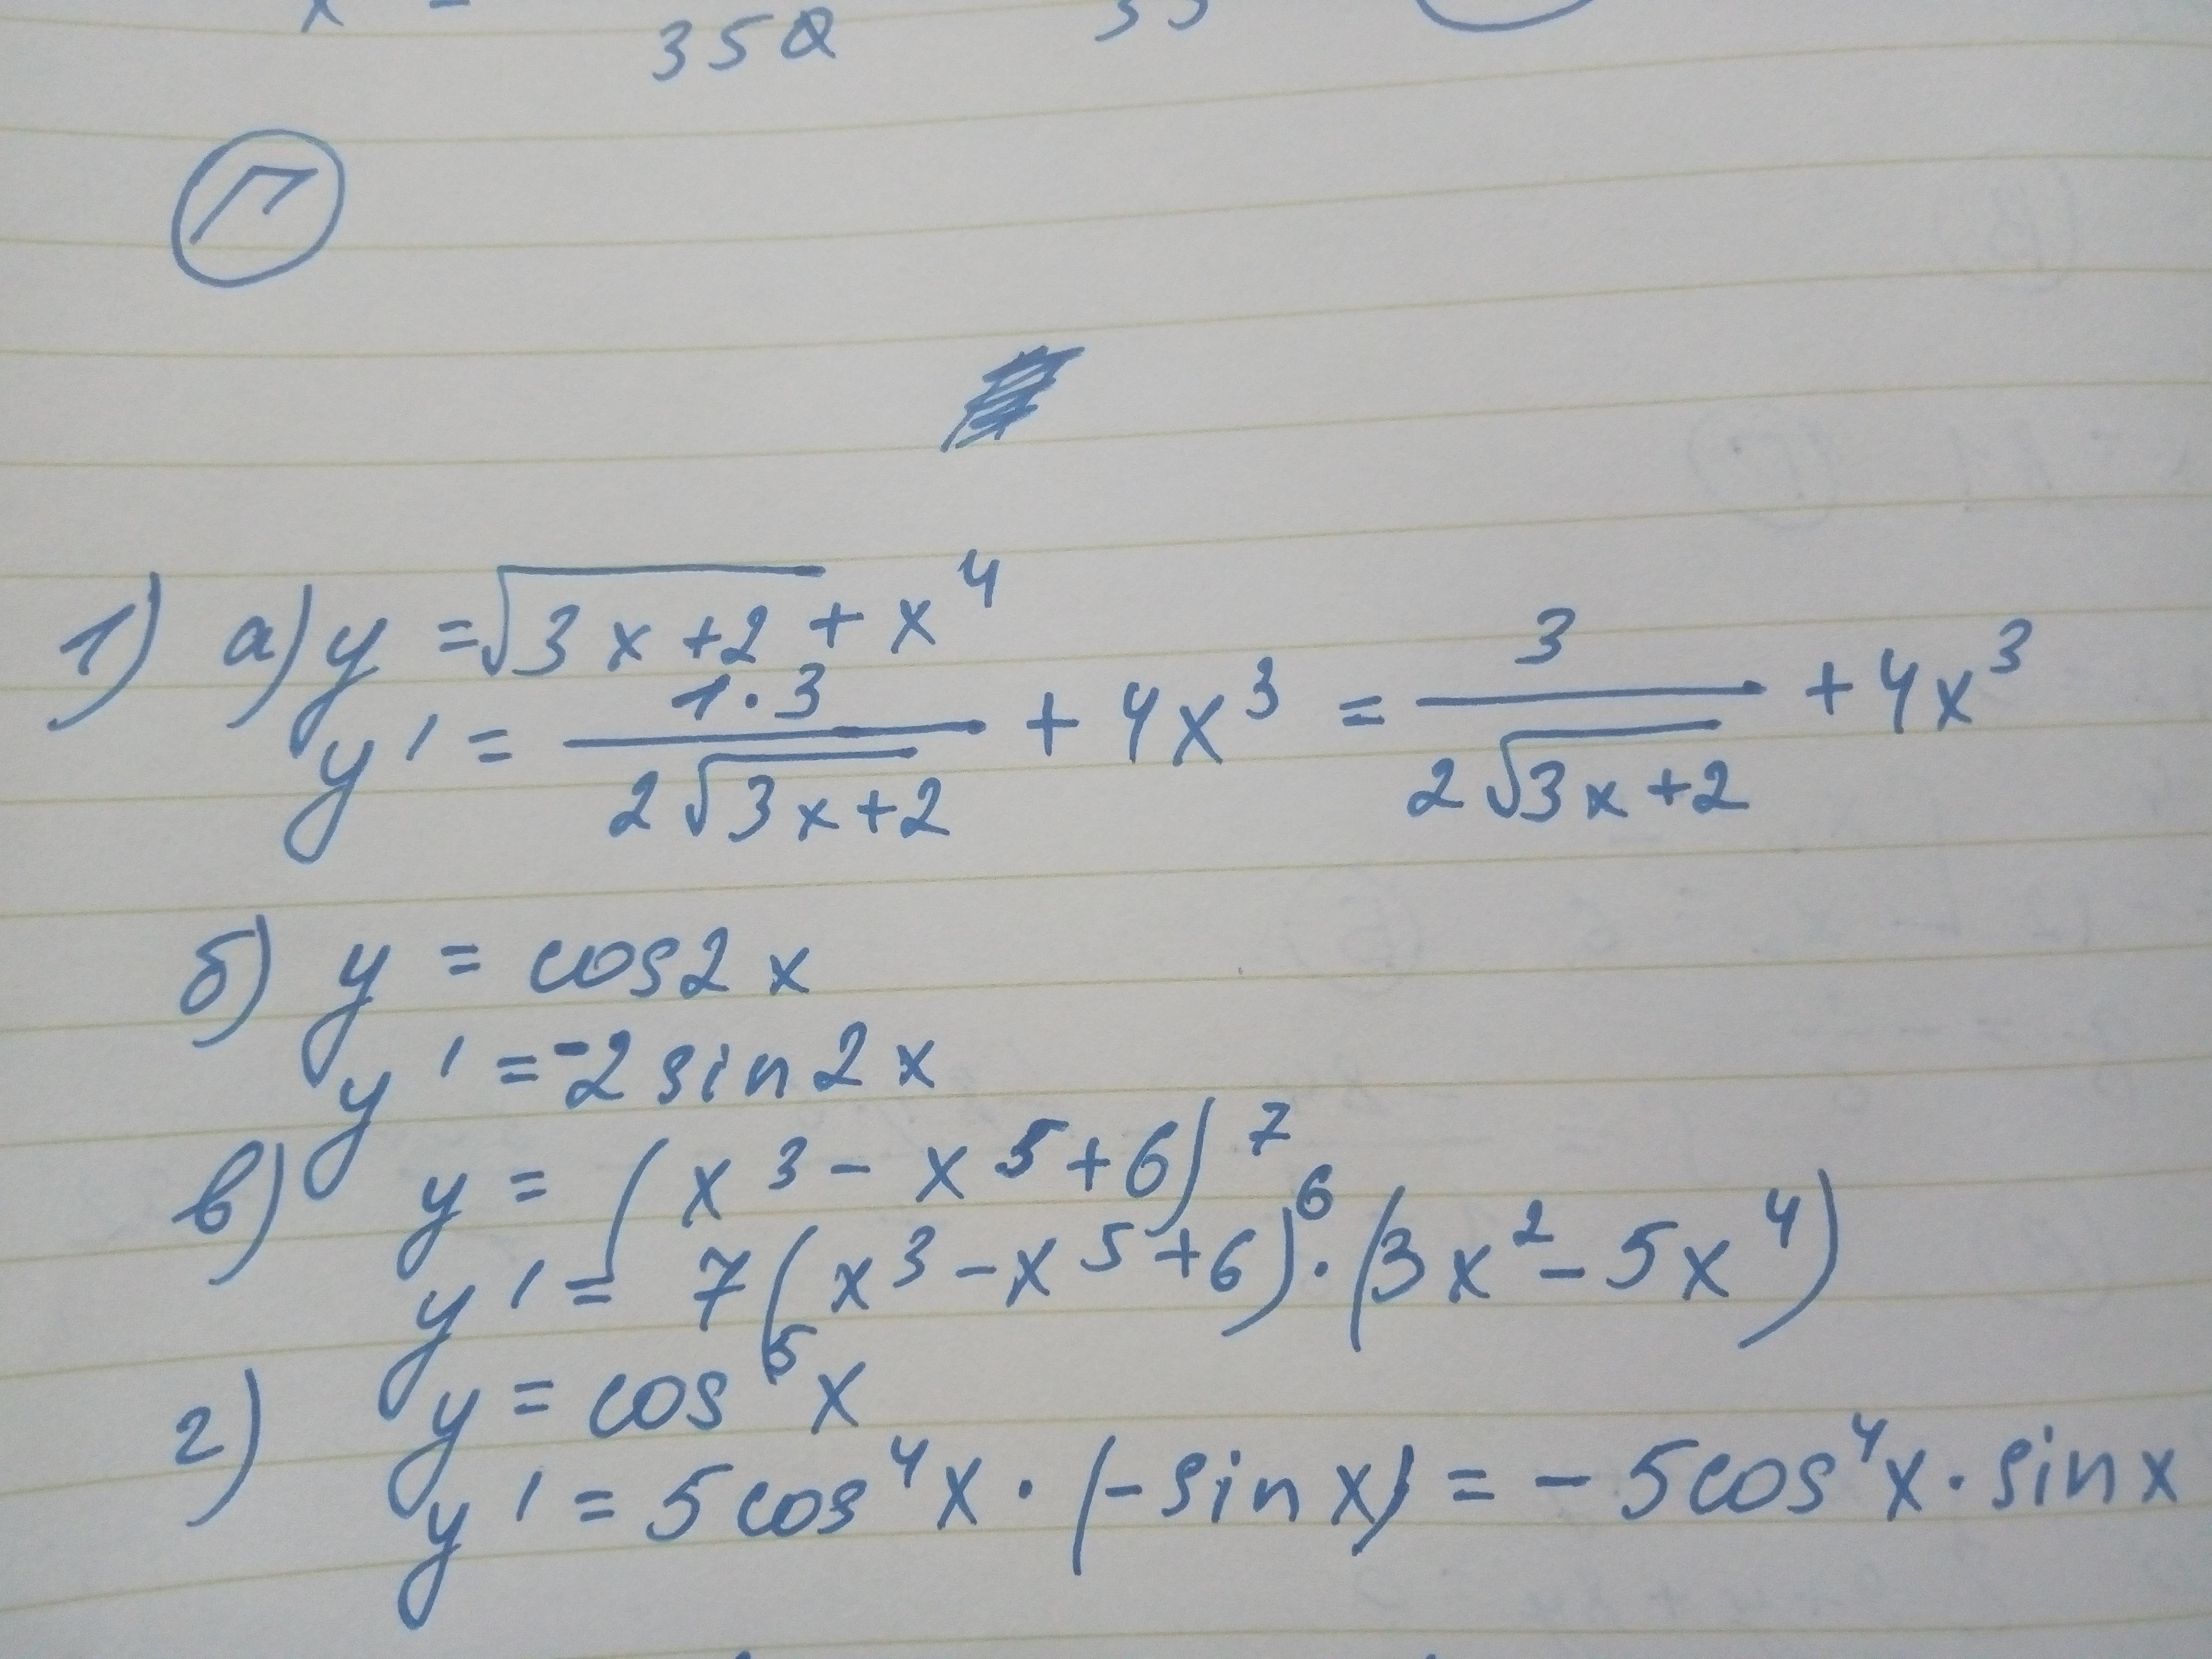 350
П
1) а) y = √(3x+2) + x⁴
y' = (1·3)/(2√(3x+2)) + 4x³ = 3/(2√(3x+2)) + 4x³
б) y = cos2x
y' = -2sin2x
в) y = (x³ - x⁵ + 6)⁷
y' = 7(x³ - x⁵ + 6)⁶ · (3x² - 5x⁴)
г) y = cos⁵x
y' = 5cos⁴x · (-sin x) = -5cos⁴x · sin x